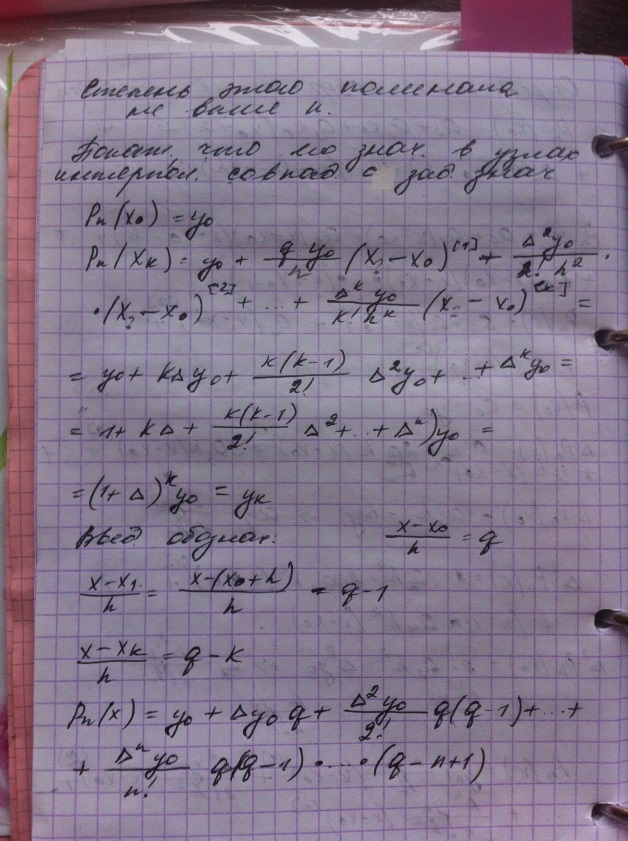 Степень этого полинома
не выше n.
Покаж, что его знач. в узлах
интерпол. совпад с зад знач
Pn(x₀) = y₀
Pn(xк) = y₀ + q y₀/h (x₂ - x₀)^[1] + Δ²y₀/2! h² ·
· (x₂ - x₀)^[2] + ... + Δ^к y₀/к! h^к (x₂ - x₀)^[к] =
= y₀ + кΔy₀ + к(к-1)/2! Δ²y₀ + ... + Δ^к y₀ =
= 1 + кΔ + к(к-1)/2! Δ² + ... + Δ^к)y₀ =
= (1 + Δ)^к y₀ = yк
Введ обознач: x-x₀/h = q
x-x₁/h = x-(x₀+h)/h = q-1
x-xк/h = q-к
Pn(x) = y₀ + Δy₀ q + Δ²y₀/2! q(q-1) + ... +
+ Δⁿy₀/n! q(q-1)·...·(q-n+1)